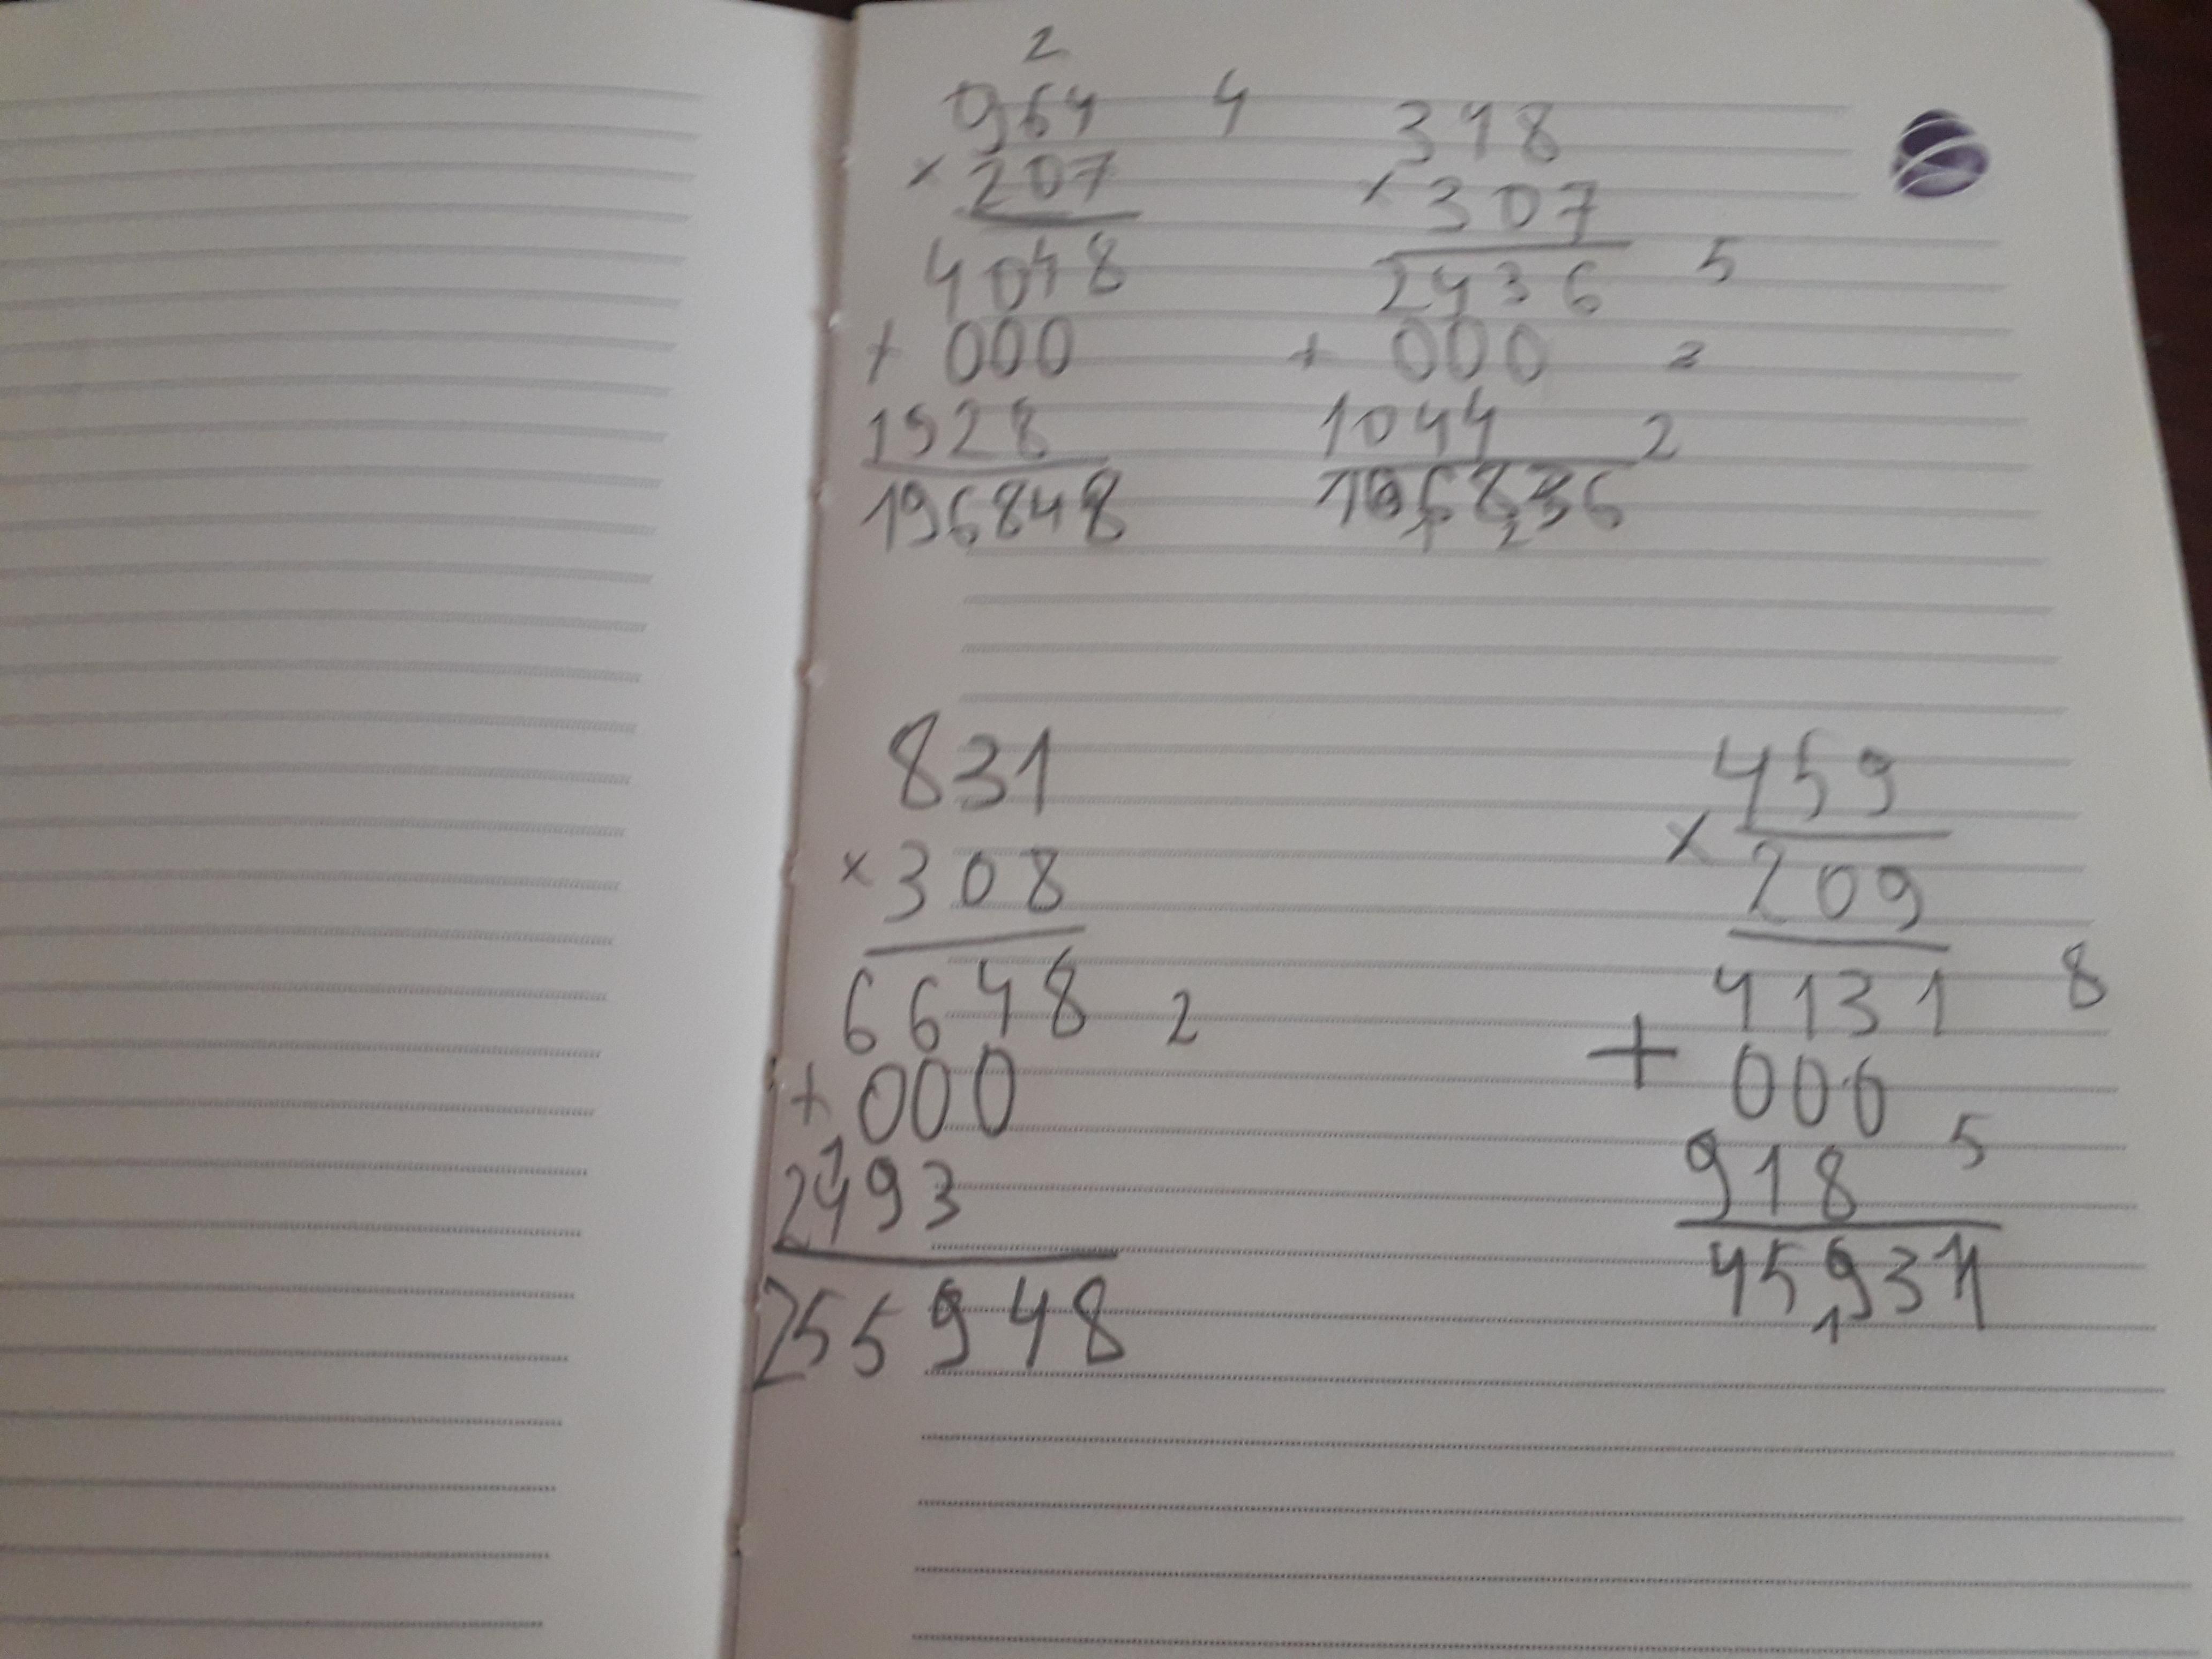 2
964 4
× 207
4048
+ 000
1928
196848
348
× 307
2436 5
+ 000 3
1044 2
106836
1 2
831
× 308
6648 2
+ 000
1
2493
255948
459
× 209
4131 8
+ 000
918 5
45931
1